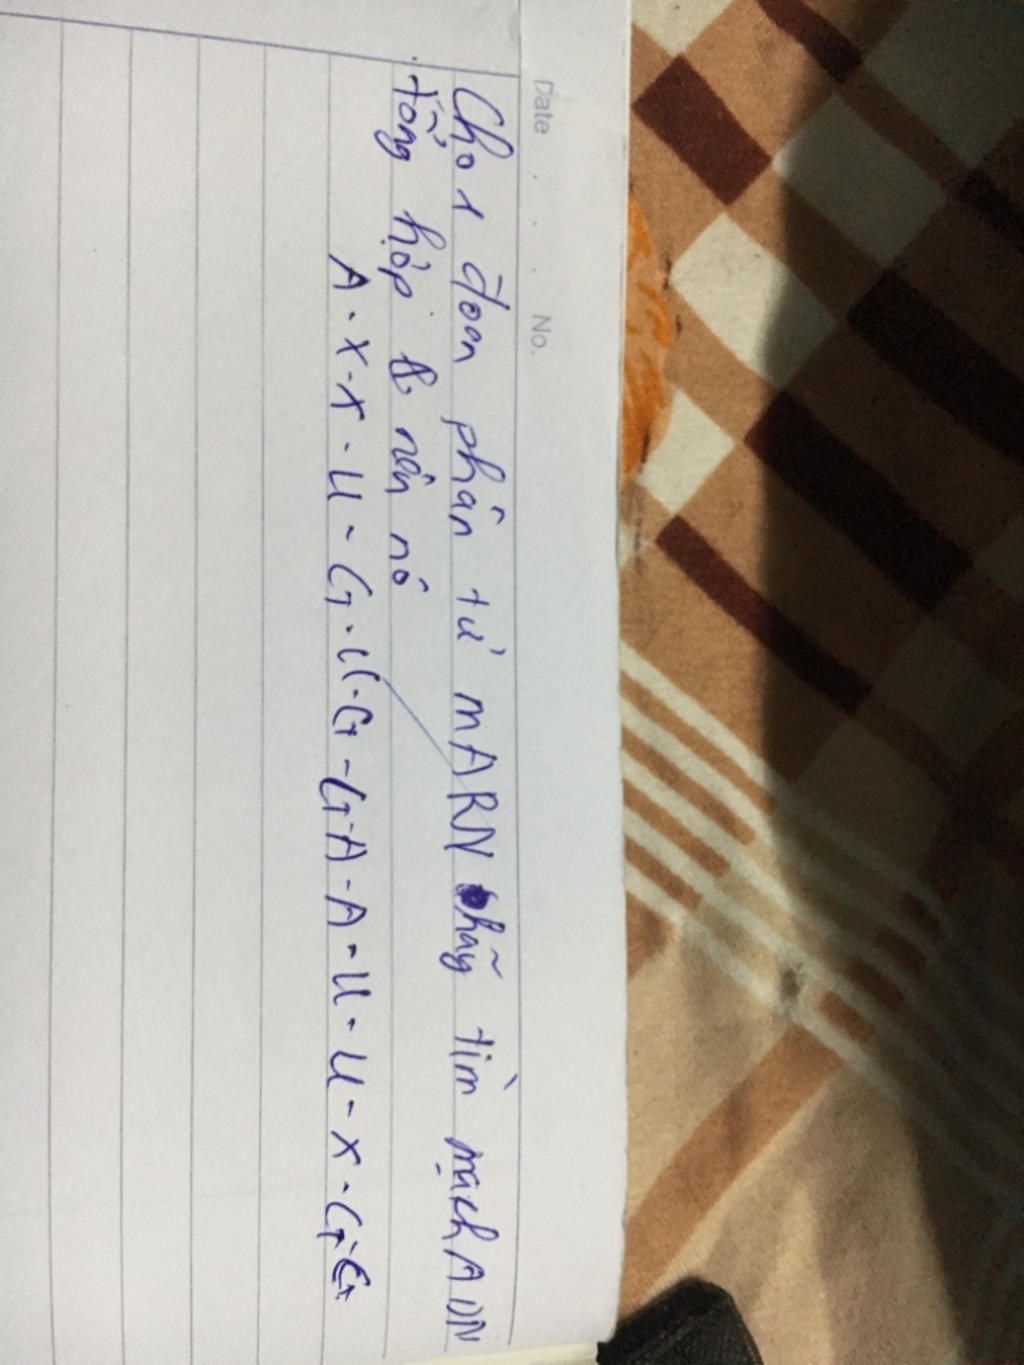 Date . . . No.
Cho 1 đoan phân tử mARN hãy tìm mạch ADN
tổng hợp nên nó
A - X - X - U - G - U - G - G - A - A - U - U - X - G - G